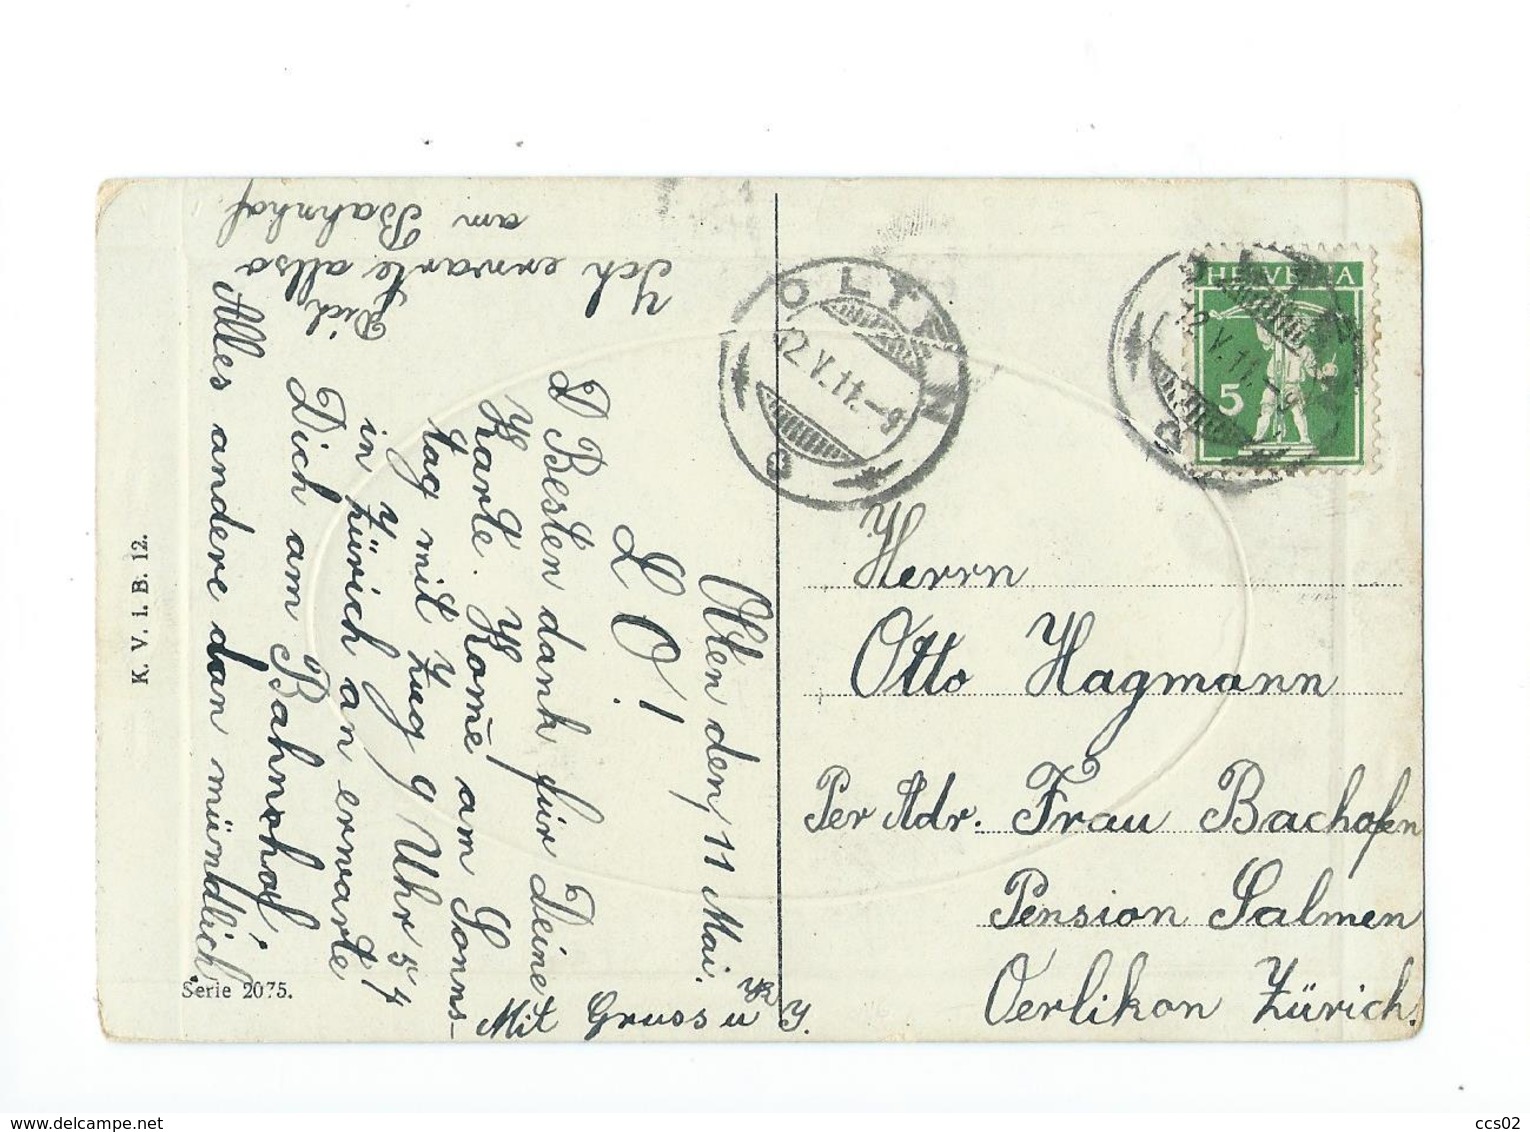 Olten den, 11 Mai.
L O!
D Besten dank für Deine
Karte. Kome am Sonns-
tag mit Zug 9 Uhr 54
in Zürich an erwarte
Dich am Bahnhof!
Alles andere dan mündlich
Ich erwarte allso
Dich am
Bahnhof
Mit Gruss u
J.
OLTEN
12.V.11.-9
HELVETIA
5
12.V.11.-9
Herrn
Otto Hagmann
Per Adr. Frau Bachofen
Pension Salmen
Oerlikon Zürich.
K. V. i. B. 12.
Serie 2075.
www.delcampe.net
ccs02